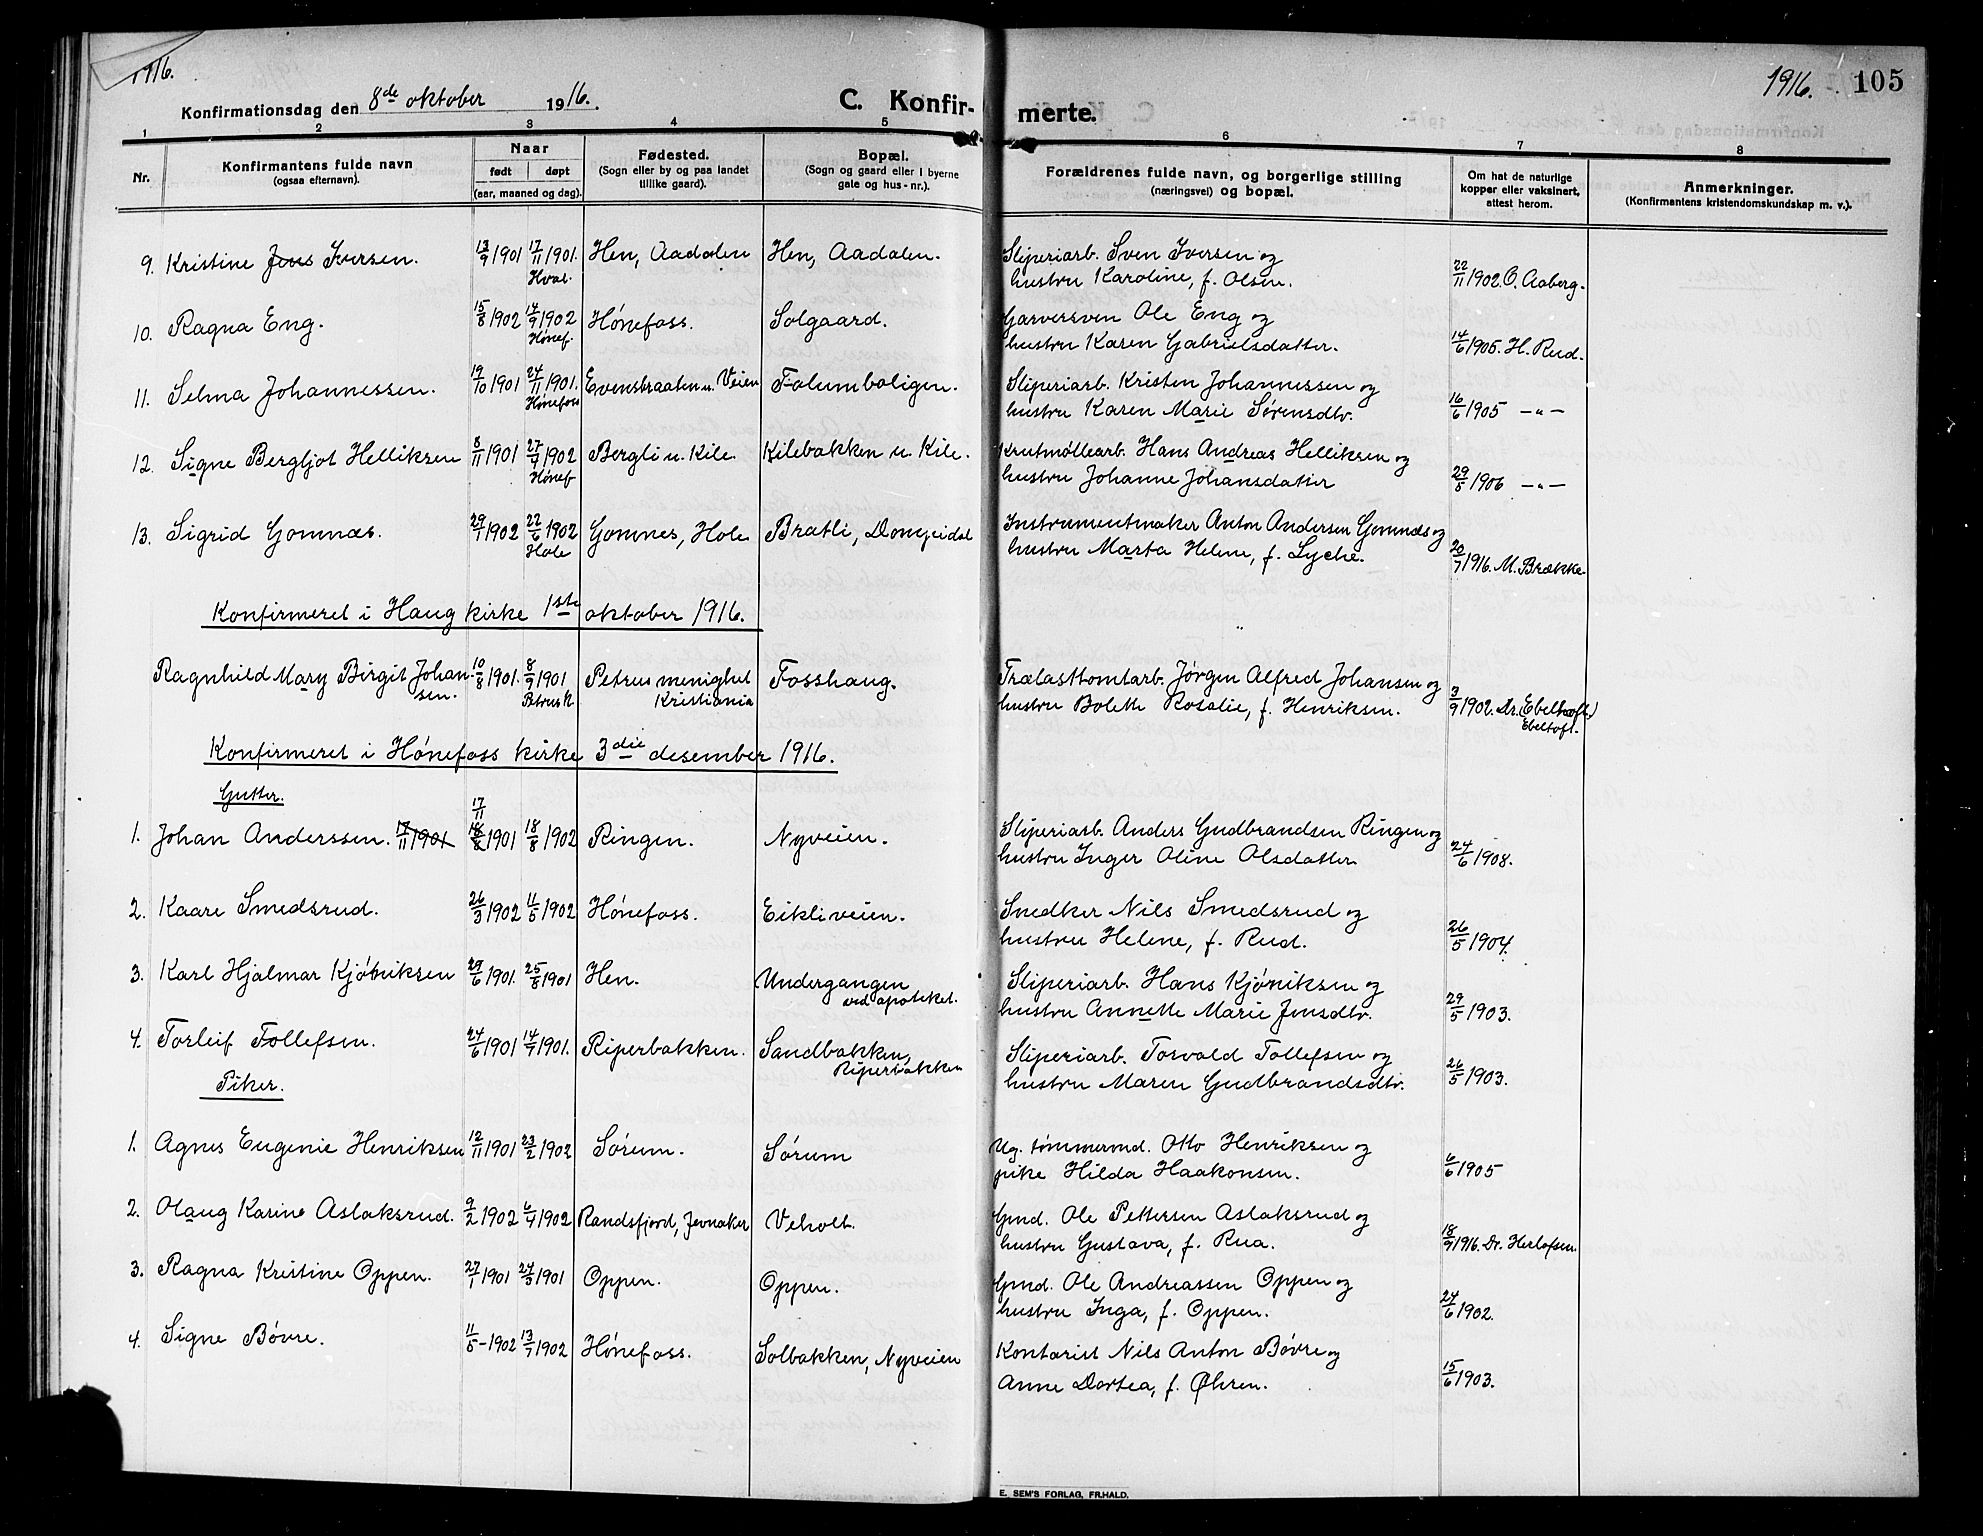 1916.
1916. 105
Konfirmationsdag den 8de oktober 1916.
C. Konfir- merte.
1 2 3 4 5 6 7 8
Nr.
Konfirmantens fulde navn
(ogsaa efternavn).
Naar
født døpt
(aar, maaned og dag).
Fødested.
(Sogn eller by og paa landet
tillike gaard).
Bopæl.
(Sogn og gaard eller i byerne
gate og hus-nr.).
Forældrenes fulde navn, og borgerlige stilling
(næringsvei) og bopæl.
Om hat de naturlige
kopper eller vaksinert,
attest herom.
Anmerkninger.
(Konfirmantens kristendomskundskap m. v.).
9. Kristine Jens Iversen. 13/9 1901 17/11 1901. Hval. Hen, Aadalen Hen, Aadalen. Sliperiarb. Sven Iversen og
hustru Karoline, f. Olsen. 22/11 1902. O. Aaberg.
10. Ragna Eng. 15/8 1902 14/9 1902 Hønef. Hønefoss. Solgaard. Garversven Ole Eng og
hustru Karen Gabrielsdatter. 14/6 1905. H. Rud.
11. Selma Johannessen. 19/10 1901 24/11 1901. Hønefoss Evensbraaten u. Veien Falumboligen. Sliperiarb. Kristen Johannessen og
hustru Karen Marie Sørensdtr. 16/6 1905 -"-
12. Signe Bergljot Helliksen 8/11 1901 27/4 1902 Hønef Bergli u. Kile. Kilebakken u. Kile. Krutmøllearb. Hans Andreas Helliksen og
hustru Johanne Johansdatter 29/5 1906 -"-
13. Sigrid Gomnæs. 29/1 1902 22/6 1902 Hole Gomnes, Hole Bratli, Instrumentmaker Anton Andersen Gomnæs og
hustru Marta Helene, f. Lyche. 20/7 1916. M. Brække.
Konfirmeret i Haug kirke 1ste oktober 1916.
Ragnhild Mary Birgit Johan-
sen. 10/8 1901. 8/9 1901 Petrus k. Petrus menighet
Kristiania Fosshaug. Trælasttomtarb. Jørgen Alfred Johansen og
hustru Bolette Rosalie, f. Henriksen. 3/9 1902. Dr. (Ebeltoft.)
Ebeltoft.
Konfirmeret i Hønefoss kirke 3die desember 1916.
Gutter.
1. Johan Anderssen. 17/11 1901 17/11 18/8 1901 18/8 1902 Ringen. Nyveien. Sliperiarb. Anders Gudbrandsen Ringen og
hustru Inger Oline Olsdatter 24/6 1908.
2. Kaare Smedsrud. 26/3 1902 11/5 1902 Hønefoss. Eikliveien. Snedker Nils Smedsrud og
hustru Helene, f. Rud. 26/5 1904.
3. Karl Hjalmar Kjøniksen 29/6 1901. 25/8 1901 Hen. Undergangen
ved apoteket. Sliperiarb. Hans Kjøniksen og
hustru Annette Marie Jensdtr. 29/5 1903.
4. Torleif Tollefsen. 24/6 1901 14/7 1901. Riperbakken. Sandbakken,
Riperbakken Sliperiarb. Torvald Tollefsen og
hustru Maren Gudbrandsdtr. 26/5 1903.
Piker.
1. Agnes Eugenie Henriksen 12/11 1901 23/2 1902 Sørum. Sørum Ug. tømmermd. Otto Henriksen og
pike Hilda Haakonsen. 6/6 1905
2. Olaug Karine Aslaksrud. 9/2 1902 6/4 1902 Randsfjord, Jevnaker Veholt. Gmd. Ole Pettersen Aslaksrud og
hustru Gustava, f. Rua. 18/9 1916. Dr. Herlofsen.
3. Ragna Kristine Oppen. 27/1 1901 24/3 1901 Oppen. Oppen. Gmd. Ole Andreassen Oppen og
hustru Inga, f. Oppen. 24/6 1902.
4. Signe Bøvre. 11/5 -1902 13/7 1902 Hønefoss. Solbakken, Nyveien Kontorist Nils Anton Bøvre og
Anne Dortea, f. Øhren. 15/6 1903.
E. SEM'S FORLAG, FR.HALD.